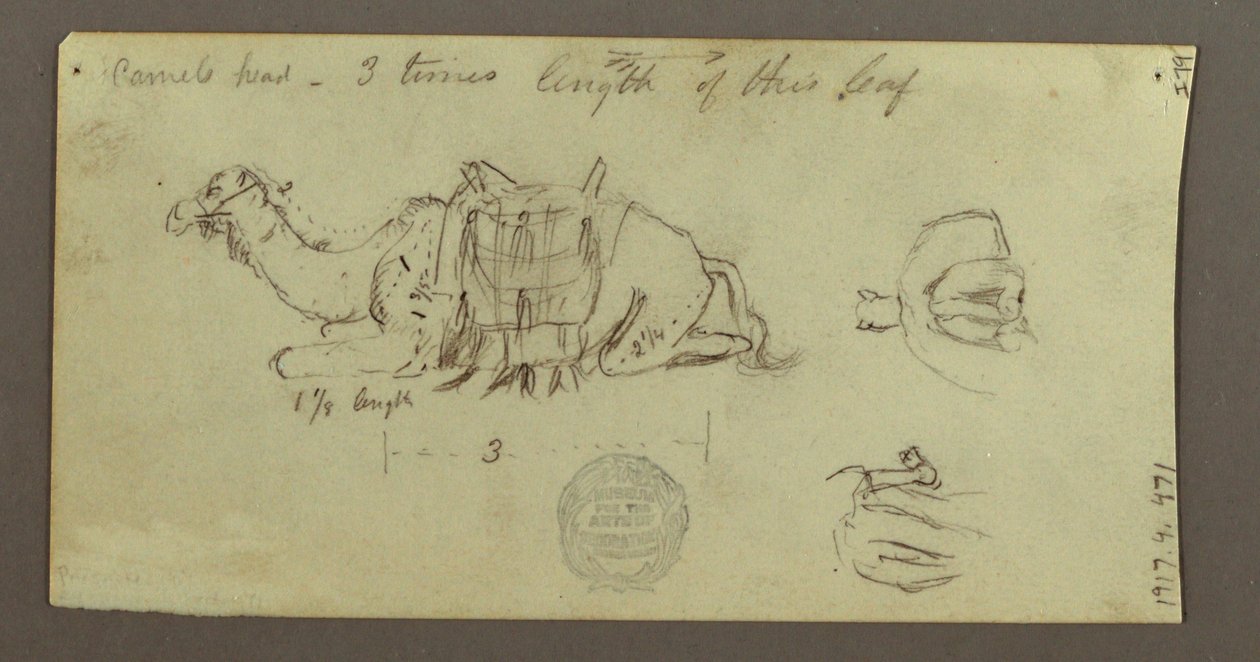 Camels head - 3 times length of this leaf
2
1
1 3/5
2 1/4
1 1/8 length
3
MUSEUM
FOR THE
ARTS OF
DECORATION
1917.4.471